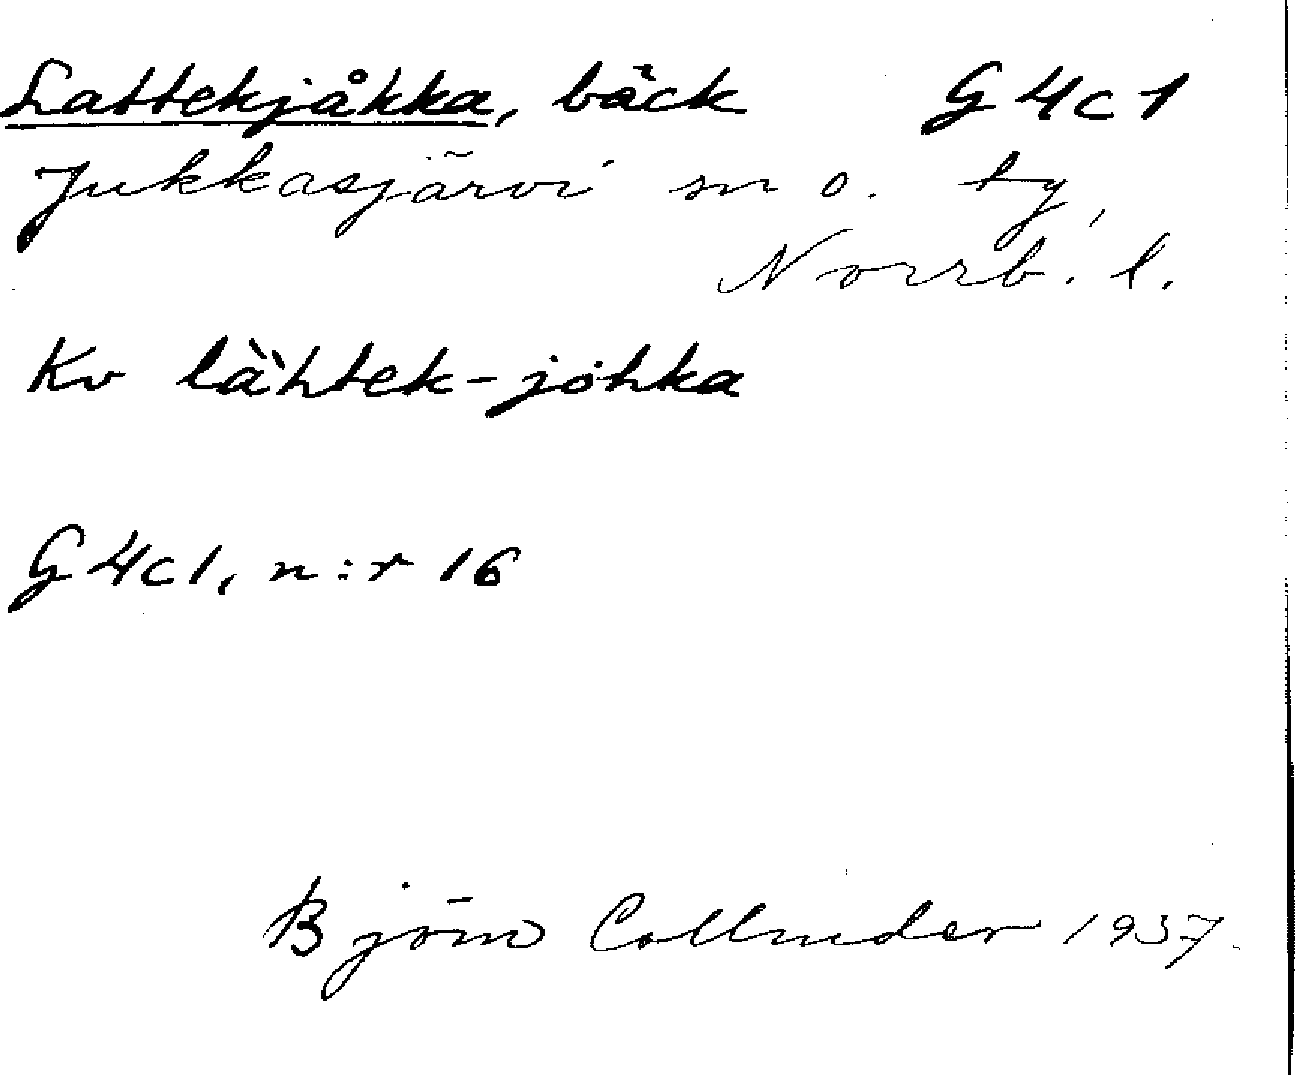 Lattekjåkka, bäck G4c1
Jukkasjärvi sn o. tg,
Norrb. l.
Kv làhtek-johka
G4c1, n:r 16
Björn Collinder 1937.